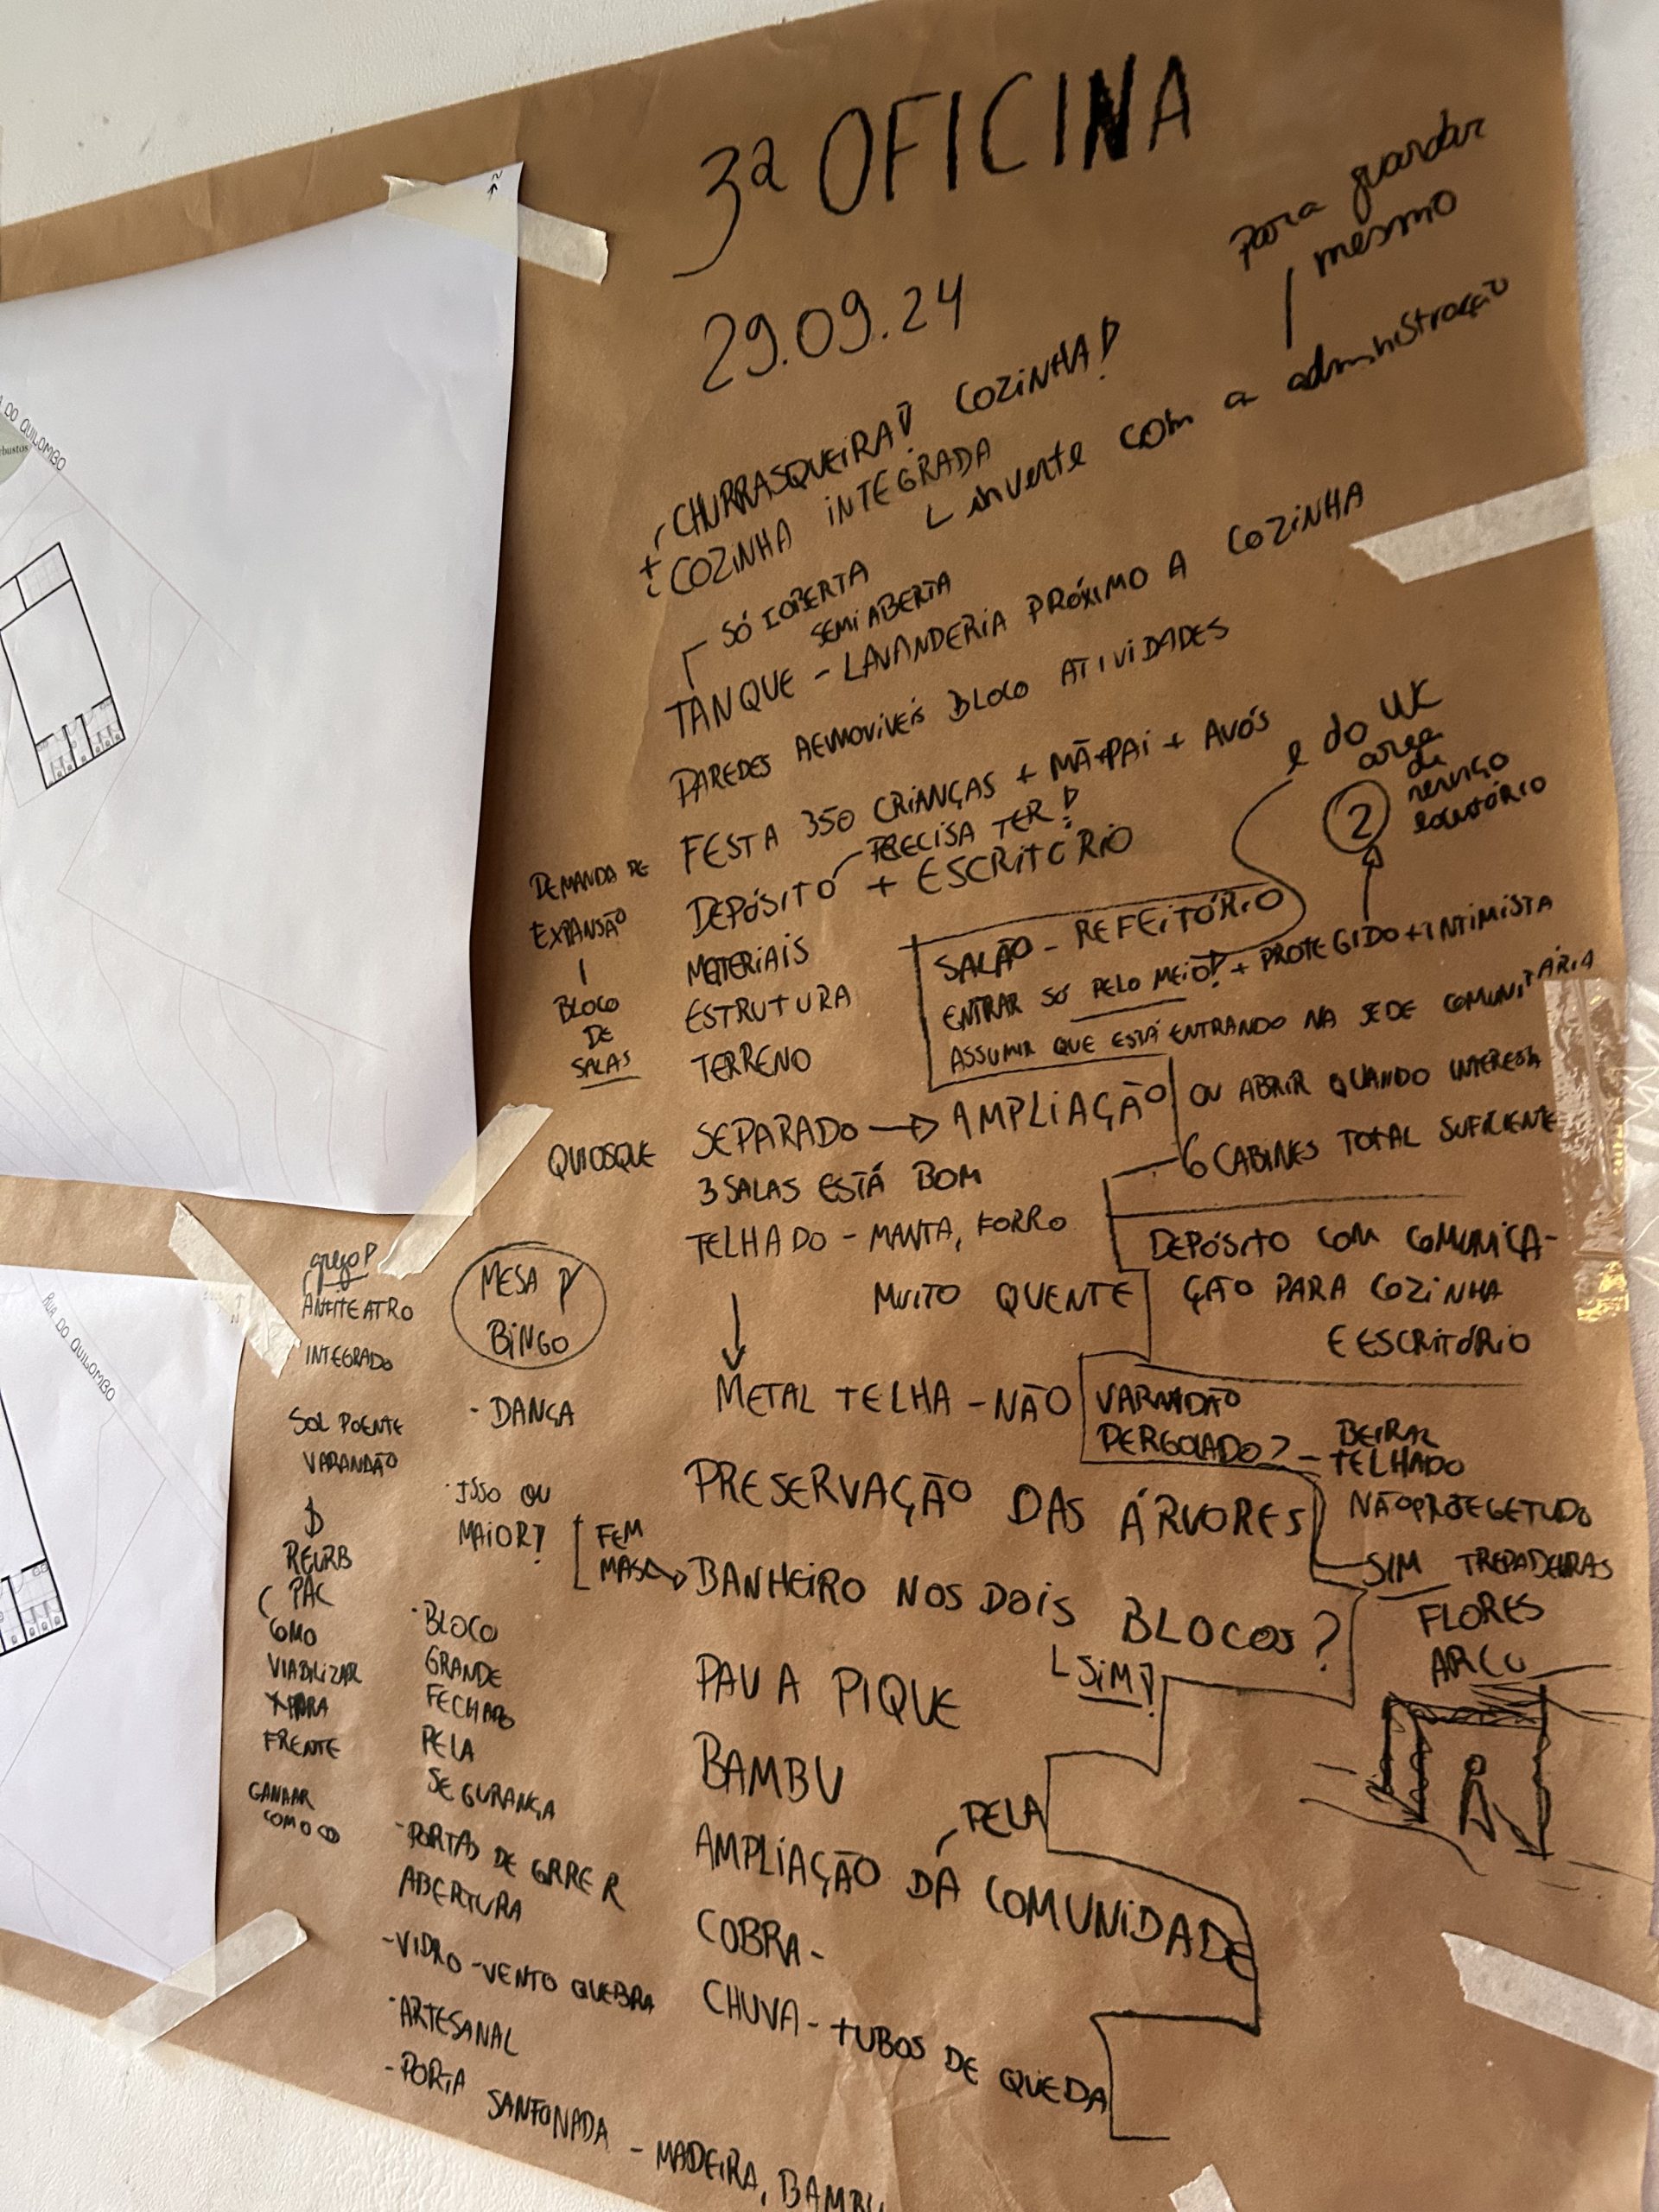 3ª OFICINA
29.09.24
para guardar
mesmo
CHURRASQUEIRA! COZINHA!
+ COZINHA INTEGRADA
inverte com a administração
SÓ COBERTA
SEMI ABERTA
TANQUE - LAVANDERIA PRÓXIMO A COZINHA
PAREDES REMOVÍVEIS BLOCO ATIVIDADES
FESTA 350 CRIANÇAS + MÃE+PAI + AVÓS
e do WC
2
area
de
serviço
escritório
PRECISA TER!
DEPÓSITO + ESCRITÓRIO
MATERIAIS
ESTRUTURA
TERRENO
DEMANDA DE
EXPANSÃO
BLOCO
DE
SALAS
SALÃO - REFEITÓRIO
ENTRAR SÓ PELO MEIO! + PROTEGIDO + INTIMISTA
ASSUMIR QUE ESTÁ ENTRANDO NA SEDE COMUNITÁRIA
OU ABRIR QUANDO INTERESSA
6 CABINES TOTAL SUFICIENTE
QUIOSQUE SEPARADO → AMPLIAÇÃO
3 SALAS ESTÁ BOM
TELHADO - MANTA, FORRO
MUITO QUENTE
↓
METAL TELHA - NÃO
DEPÓSITO COM COMUNICA-
ÇÃO PARA COZINHA
E ESCRITÓRIO
VARANDÃO
PERGOLADO? - BEIRAL
TELHADO
NÃO PROTEGE TUDO
SIM TREPADEIRAS
FLORES
ARCO
PRESERVAÇÃO DAS ÁRVORES
FEM
MASC → BANHEIRO NOS DOIS BLOCOS?
SIM!
PAU A PIQUE
BAMBU
PELA
AMPLIAÇÃO DÁ COMUNIDADE
COBRA -
CHUVA - TUBOS DE QUEDA
ANFITEATRO
INTEGRADO
SOL POENTE
VARANDÃO
$
REURB
PAC
COMO
VIABILIZAR
PARA
FRENTE
GANHAR
COMO
MESA P/
BINGO
- DANÇA
- ISSO OU
MAIOR?
- BLOCO
GRANDE
FECHADO
PELA
SEGURANÇA
- PORTAS DE CORRER
ABERTURA
- VIDRO - VENTO QUEBRA
- ARTESANAL
- PORTA SANFONADA - MADEIRA, BAMBU
DO QUILOMBO
bustos
N
RUA DO QUILOMBO